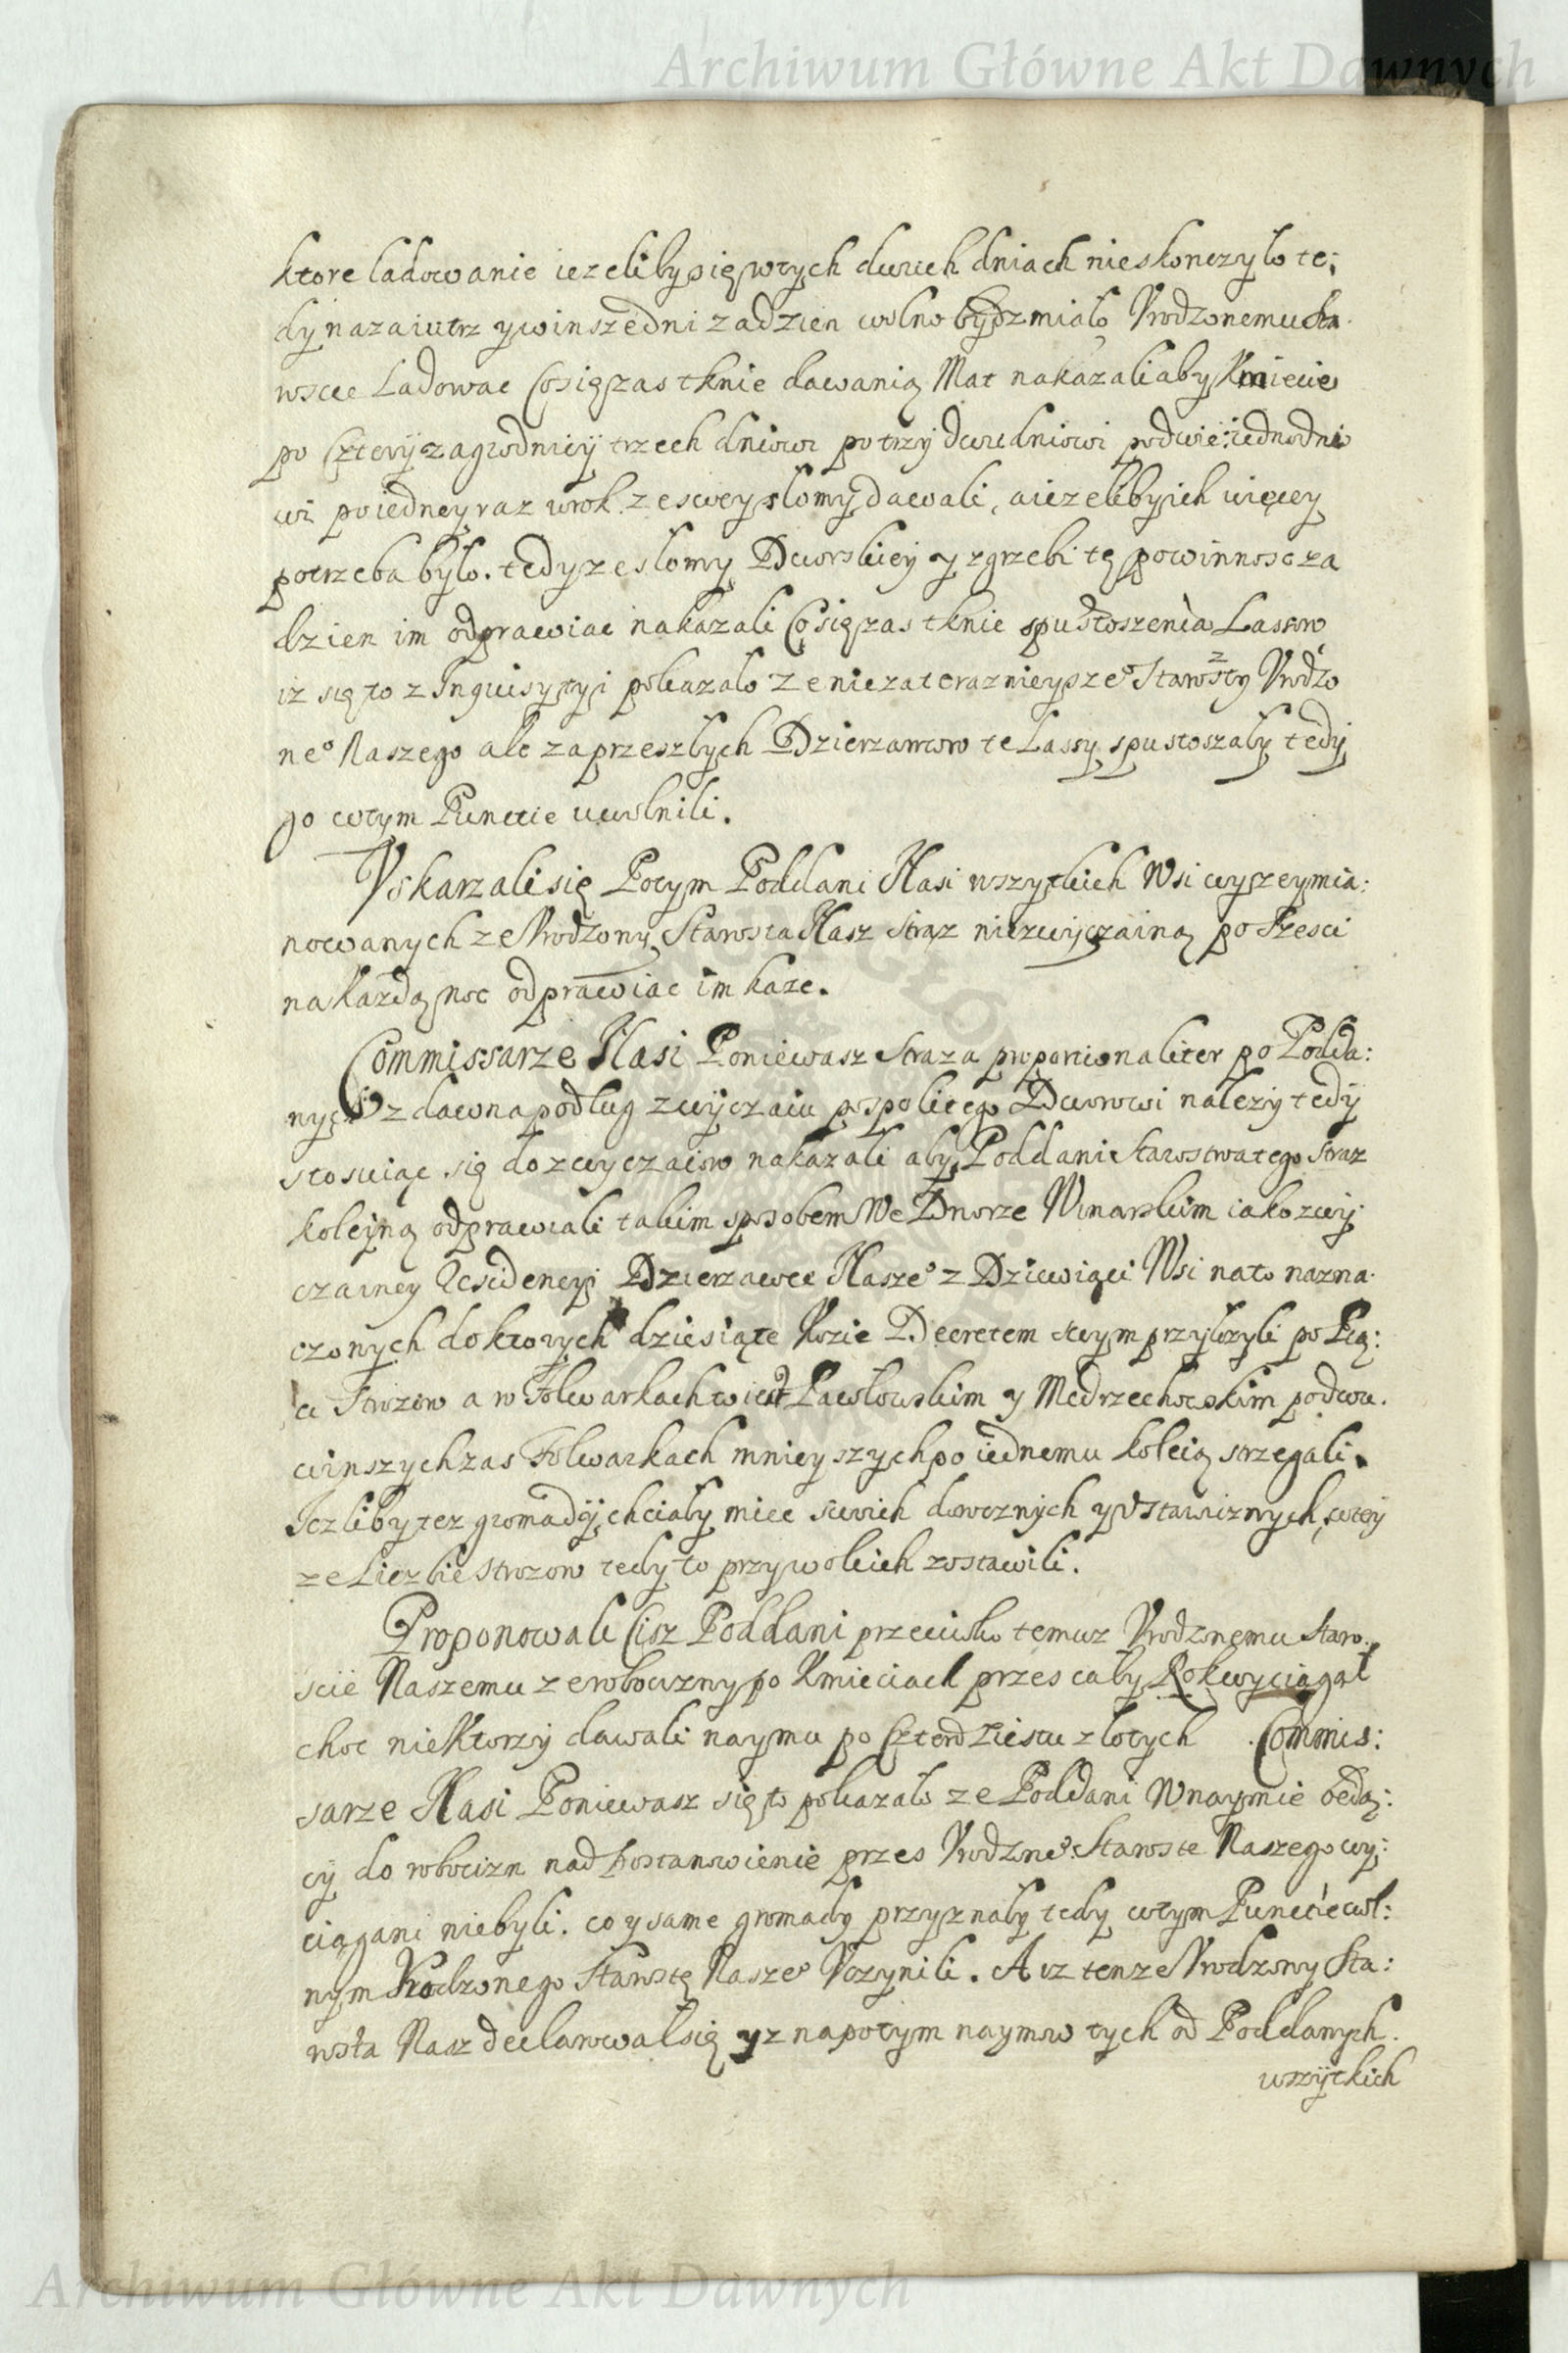 Archiwum Główne Akt Dawnych
ktore ladowanie iezeliby się wtych dwuch dniach nieskonczylo te;
dy nazaiutrz y winszedni zadzien wolno bydz mialo Vrodzonemu Sta
wscie Ladowac Co się zas tknie dawania Mat nakazali aby Kmiecie
po Cztery zagrodnicy trzech dniowi po trzy dwudniowi podwie: iednodnio
wi poiedney raz wrok. zeswey slomy dawali, aiezeliby ich więcey
potrzeba bylo. tedy ze slomy Dworskiey y zgrzebi tę powinnosc za
dzien im odprawiac nakazali Co się zas tknie spustoszenia Lassow
iz się to z Inquisytyi pokazalo ze nie za terazniejsze° Starosty Vrodzo
ne° Naszego ale za przeszlych Dzierzawcow te Lassy spustoszaly tedy
go wtym Punctie uwolnili.
Vskarzali się Potym Poddani Nasi wszytkich Wsi wyszeymia:
nowanych ze Vrodzony Starosta Nasz straz niezwyczaina po szesci
na każdą noc odprawiac im kaze.
Commissarze Nasi Poniewasz Straza proportionaliter po Podda:
nych zdawna podług zwyczaiu pospolitego Dworowi nalezy tedy
stosuiąc się do zwyczaiow nakazali aby Poddani Starostwa tego straz
koleyną odprawiali takim sposobem We Dworze Winarskim iako zwy
czainey Residencyi Dzierzawce Nasze° z Dziewiąci Wsi nato nazna
czonych do ktorych dziesiąte Kozie Decretem swym przylozyli po Pią:
ci Strozow a w Folwarkach wied Pawlowskim y Medrzechowskim podwu.
winszych zas Folwarkach mnieyszych po iednemu koleią strzegali.
Iezliby tez gromady chcialy miec swoich dorocznych y Vstawicznych, wtey
ze Liczbie strozow tedy to przy wolei ich zostawili.
Proponowali Cisz Poddani przeciwko temuz Vrodzonemu Staro
scie Naszemu ze robocizny po Kmieciach przes caly Rok wyciągal
choc niektorzy dawali naymu po Czterdziestu zlotych Commis:
sarze Nasi Poniewasz się to pokazalo ze Poddani Wnaymie będą:
cy do robocizn nad Postanowienie przes Vrodzone° Staroste Naszego wy:
ciągani niebyli. co y same gromady przyznaly tedy wtym Punctie wol:
nym Vrodzonego Starostę Nasze° Vczynili. A iz tenze Vrodzony Sta:
rosta Nasz declarowal się yz napotym naymow tych od Poddanych.
wszytkich
Archiwum Główne Akt Dawnych